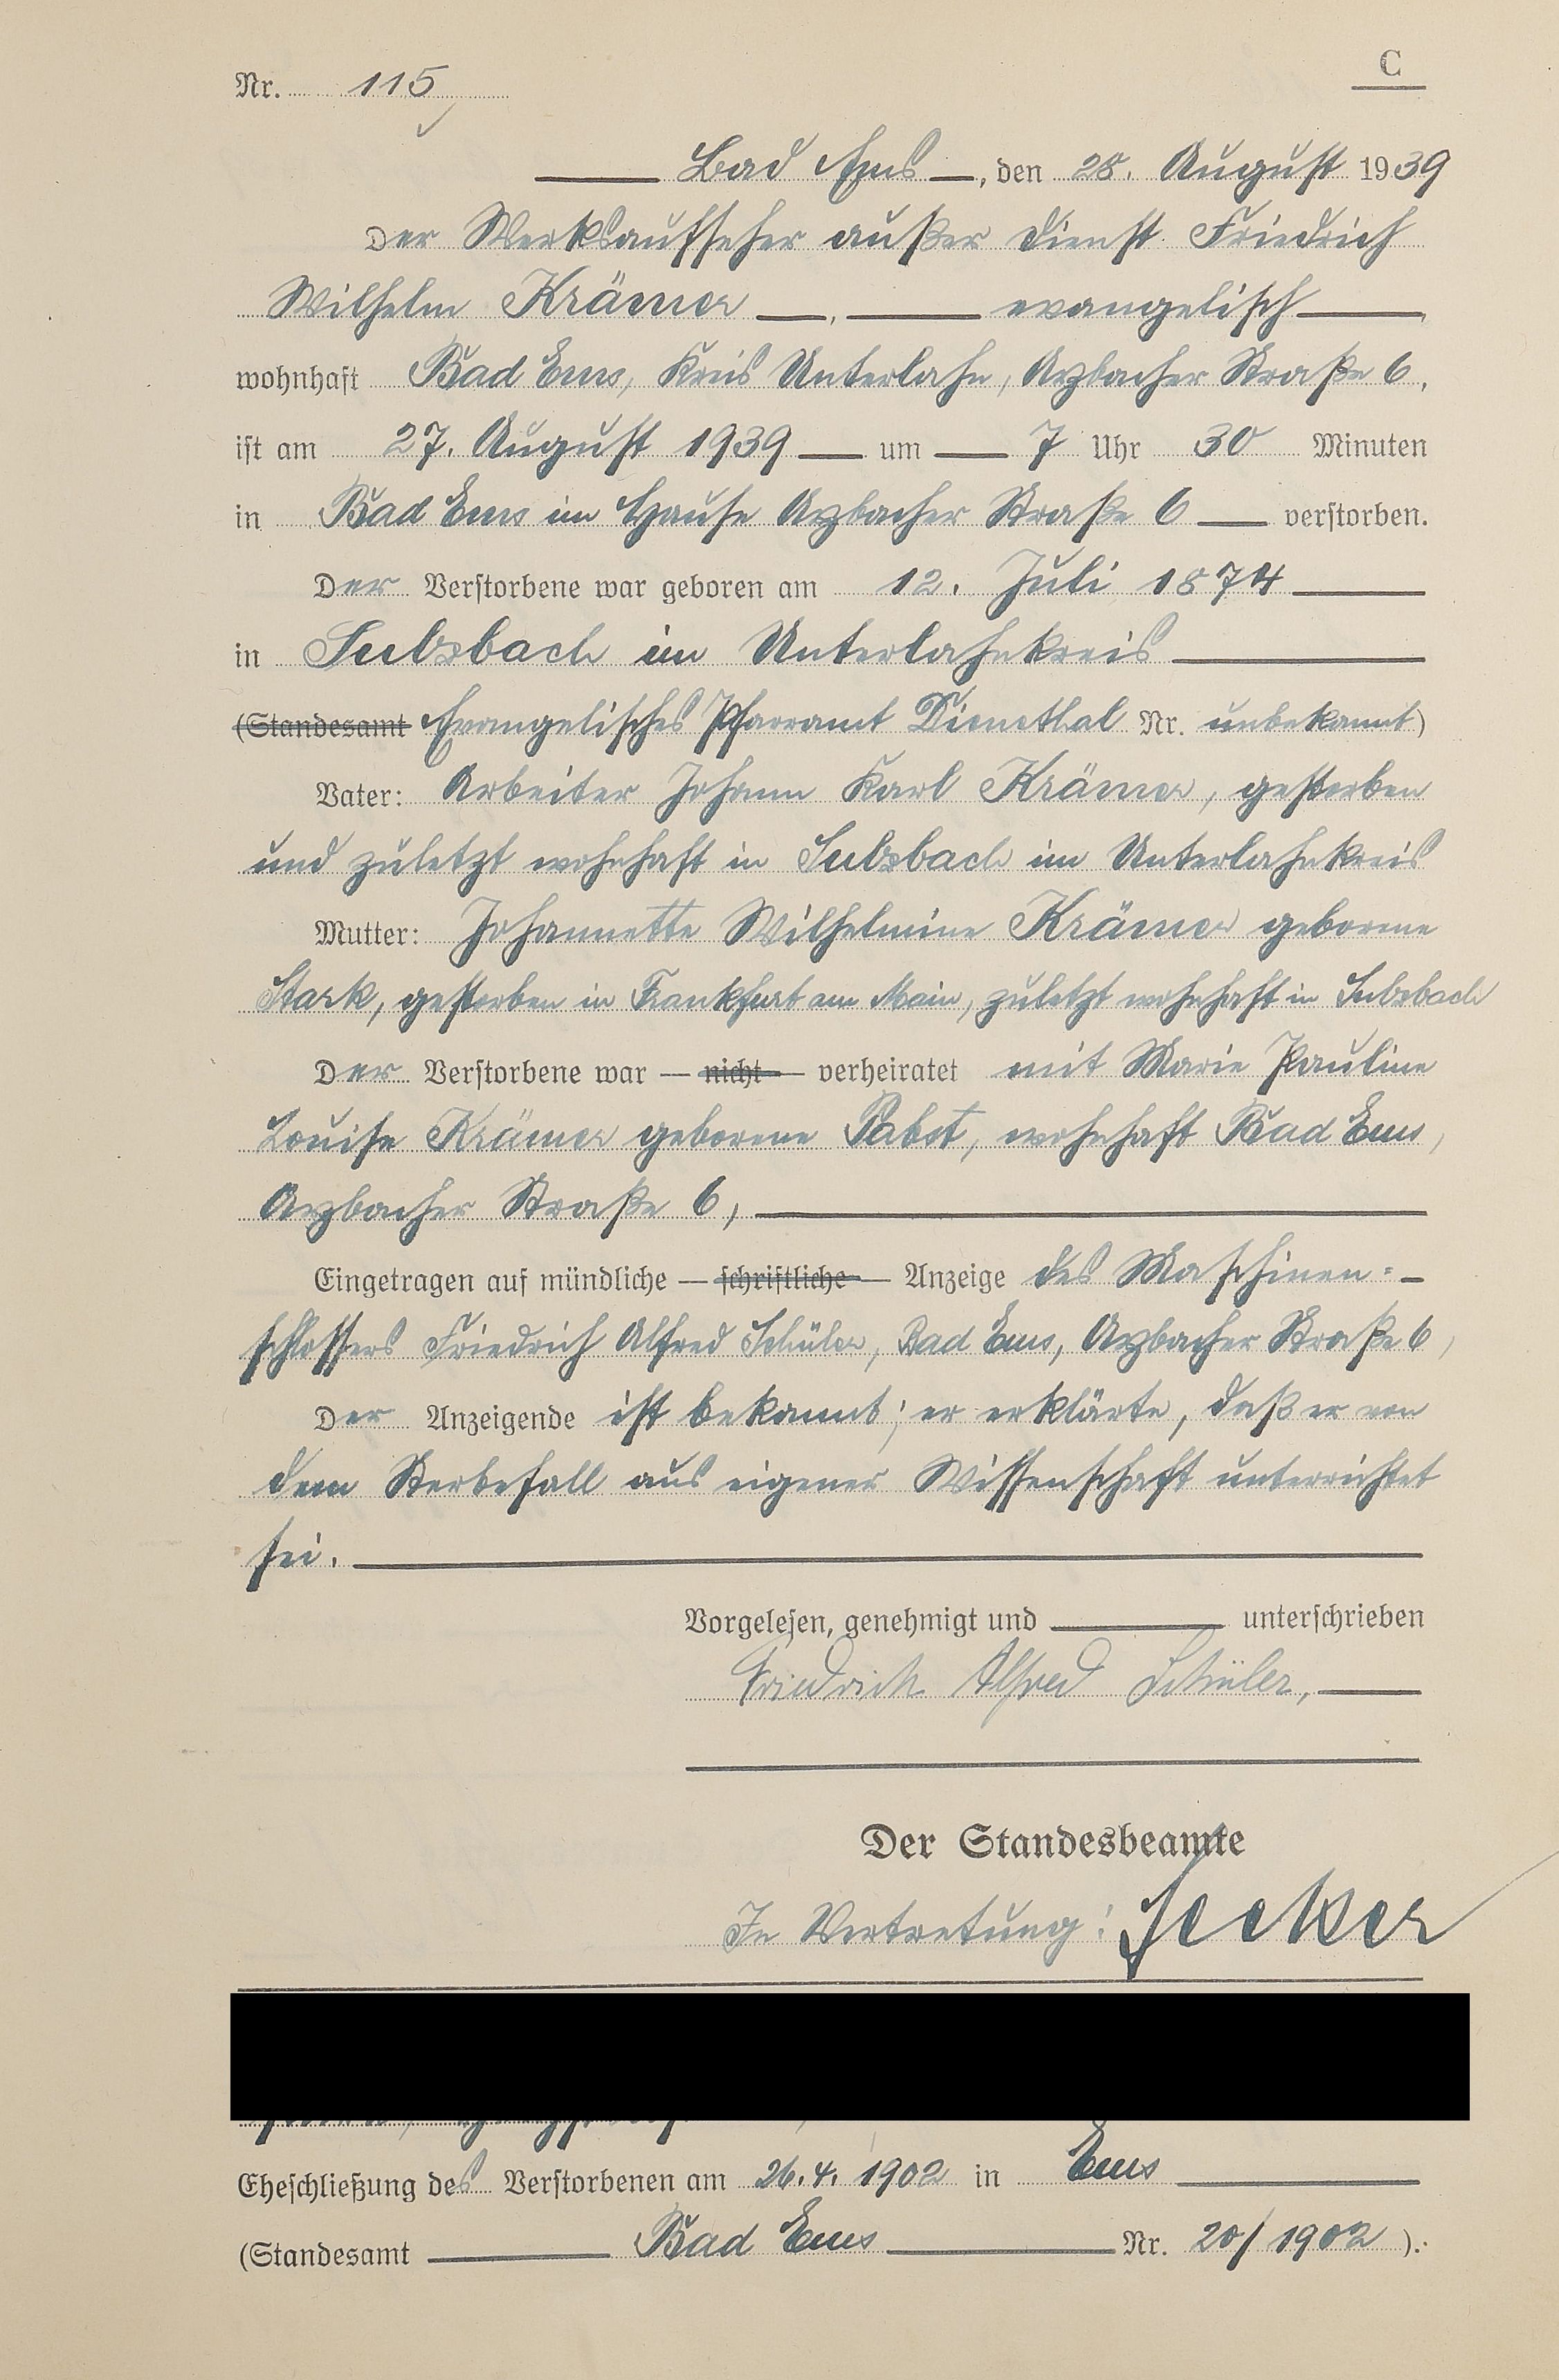 Nr. 115
C
Bad Ems, den 28. August 1939
Der Werksaufseher außer Dienst Friedrich
Wilhelm Krämer, evangelisch,
wohnhaft Bad Ems, Kreis Unterlahn, Arzbacher Straße 6,
ist am 27. August 1939 um 7 Uhr 30 Minuten
in Bad Ems im Hause Arzbacher Straße 6 verstorben.
Der Verstorbene war geboren am 12. Juli 1874
in Sulzbach im Unterlahnkreis
(Standesamt Evangelisches Pfarramt Dienethal Nr. unbekannt)
Vater: Arbeiter Johann Karl Krämer, gestorben
und zuletzt wohnhaft in Sulzbach im Unterlahnkreis
Mutter: Johannette Wilhelmine Krämer geborene
Stark, gestorben in Frankfurt am Main, zuletzt wohnhaft in Sulzbach
Der Verstorbene war — nicht — verheiratet mit Marie Pauline
Louise Krämer geborene Pabst, wohnhaft Bad Ems,
Arzbacher Straße 6,
Eingetragen auf mündliche — schriftliche — Anzeige des Maschinen-
schlossers Friedrich Alfred Schüler, Bad Ems, Arzbacher Straße 6,
Der Anzeigende ist bekannt; er erklärte, daß er von
dem Sterbefall aus eigener Wissenschaft unterrichtet
sei.
Vorgelesen, genehmigt und unterschrieben
Friedrich Alfred Schüler,
Der Standesbeamte
In Vertretung: Jecker
Eheschließung des Verstorbenen am 26.4.1902 in Ems
(Standesamt Bad Ems Nr. 20/1902).